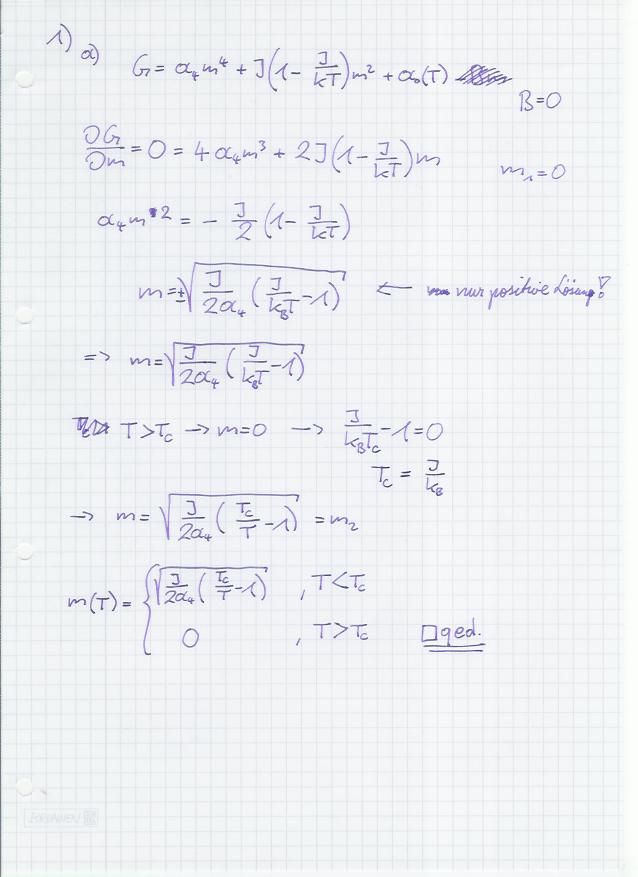 1) a) G = α₄m⁴ + J(1 - J/kT)m² + α₀(T)
B=0
∂G/∂m = 0 = 4α₄m³ + 2J(1 - J/kT)m
m₁=0
α₄m² = - J/2 (1 - J/kT)
m = ±√(J/2α₄ (J/k_BT - 1)) ← nur positive Lösung!
=> m = √(J/2α₄ (J/k_BT - 1))
T>T_C → m=0 → J/k_BT_C - 1 = 0
T_C = J/k_B
→ m = √(J/2α₄ (T_C/T - 1)) = m₂
m(T) = { √(J/2α₄ (T_C/T - 1)) , T<T_C
0 , T>T_C □ qed.